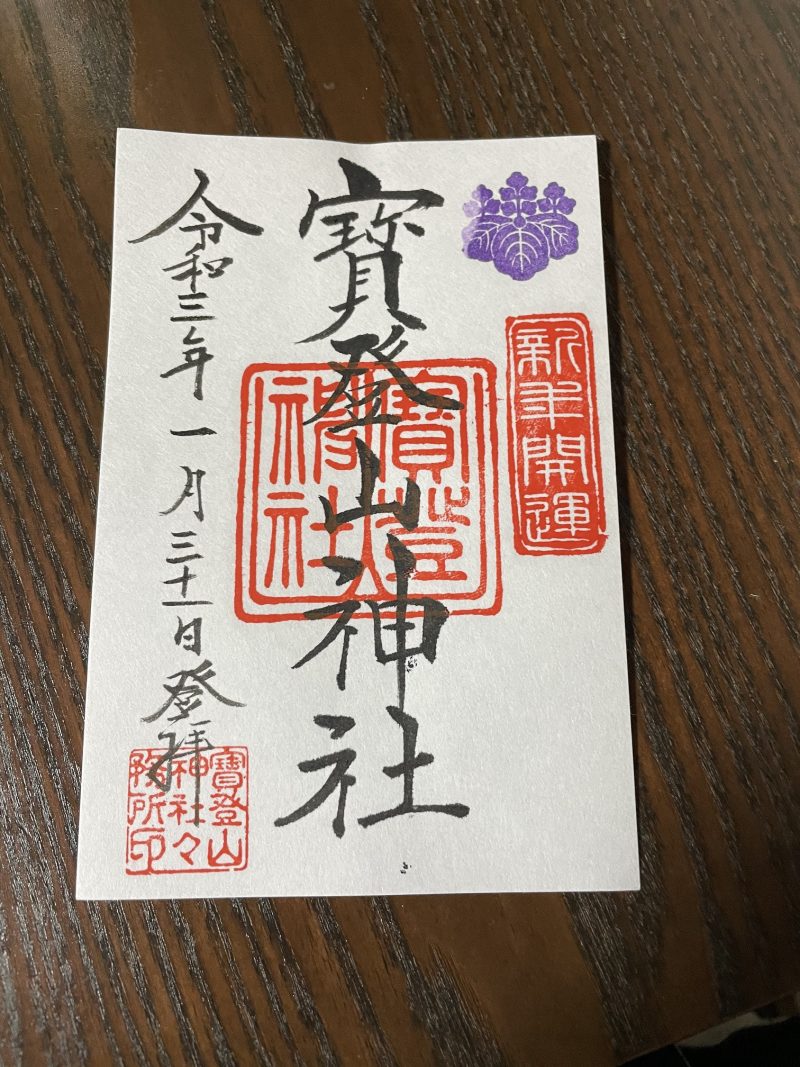 新年開運
寳登山神社
寳登山神社
令和三年一月三十一日登拝
寳登山
神社々
務所印